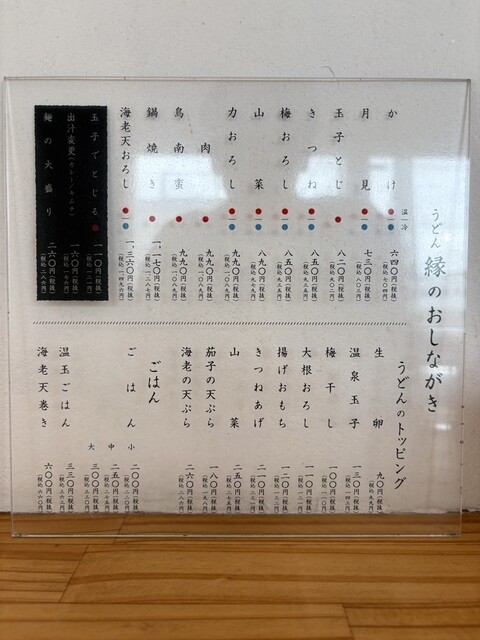 うどん 縁のおしながき
温 冷
かけ 六四〇円(税抜) (税込 七〇四円)
月見 七三〇円(税抜) (税込 八〇三円)
玉子とじ 八二〇円(税抜) (税込 九〇二円)
きつね 八五〇円(税抜) (税込 九三五円)
梅おろし 八五〇円(税抜) (税込 九三五円)
山菜 八九〇円(税抜) (税込 九七九円)
力おろし 九九〇円(税抜) (税込 一、〇八九円)
肉 九九〇円(税抜) (税込 一、〇八九円)
鳥南蛮 九九〇円(税抜) (税込 一、〇八九円)
鍋焼き 一、一七〇円(税抜) (税込 一、二八七円)
海老天おろし 一、三六〇円(税抜) (税込 一、四九六円)
玉子でとじる 一一〇円(税抜) (税込 一二一円)
出汁変更 一六〇円(税抜) (税込 一七六円)
麺の大盛り 二六〇円(税抜) (税込 二八六円)
うどんのトッピング
生卵 九〇円(税抜) (税込 九九円)
温泉玉子 一三〇円(税抜)
梅干し 一〇〇円(税抜) (税込 一一〇円)
大根おろし 一一〇円(税抜) (税込 一二一円)
揚げおもち 一二〇円(税抜) (税込 一三二円)
きつねあげ 二一〇円(税抜) (税込 二三一円)
山菜 二五〇円(税抜) (税込 二七五円)
茄子の天ぷら 一八〇円(税抜) (税込 一九八円)
海老の天ぷら 二六〇円(税抜) (税込 二八六円)
ごはん
ごはん 小 二〇〇円(税抜) (税込 二二〇円)
中 二五〇円(税抜) (税込 二七五円)
大 三〇〇円(税抜) (税込 三三〇円)
温玉ごはん 三三〇円(税抜) (税込 三六三円)
海老天巻き 六〇〇円(税抜) (税込 六六〇円)